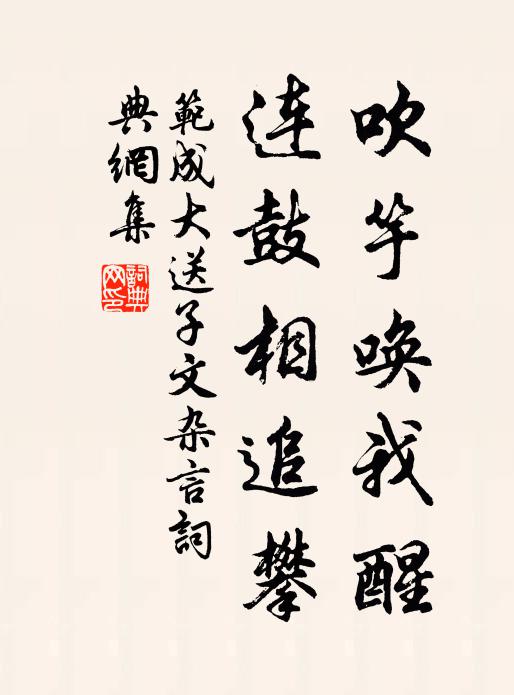 吹竽唤我醒
连鼓相追攀
範成大送子文杂言詞
典網集
詞典
网印